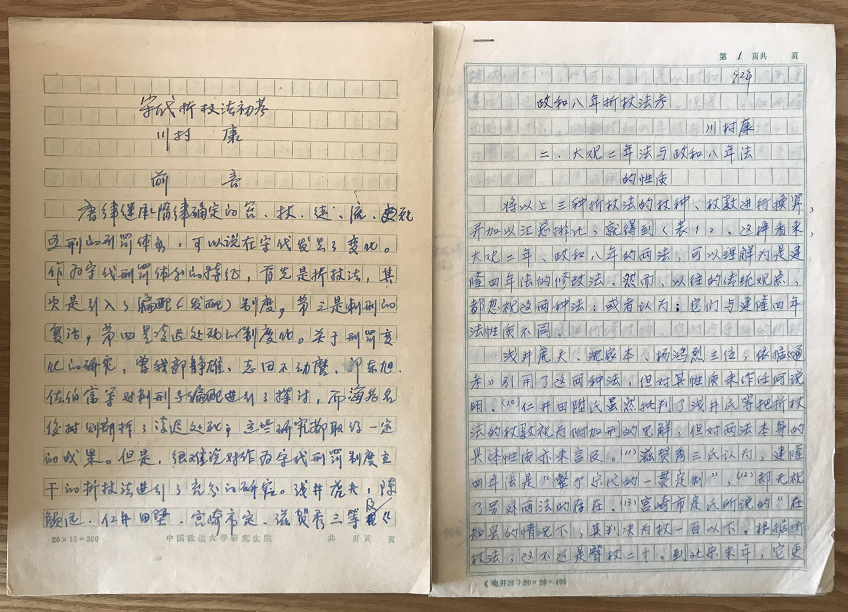 宋代折杖法初考
川村 康
前言
唐律继承隋律确定的笞、杖、徒、流、死
五刑的刑罚体系，可以说在宋代发生了变化。
作为宋代刑罚体系的特征，首先是折杖法，其
次是引入了编配（发配）制度，第三是刺刑的
复活，第四是凌迟处死的制度化。关于刑罚变
化的研究，曾我部静雄、志田不动麿、郭东旭、
佐伯富等对刺刑与编配进行了探讨，而海老名
俊树则分析了凌迟处死；这些研究都取得一定
的成果。但是，很难说对作为宋代刑罚制度主
干的折杖法进行了充分的研究。浅井虎夫、陈
顾远、仁井田陞、宫崎市定、滋贺秀三等
20×15=300
中国政法大学研究生院
共 页 第 页
第 1 页共 页
92年
政和八年折杖法考
川村康
二、大观二年法与政和八年法
的性质
将以上三种折杖法的杖种、杖数进行换算，
并加以汇总排比，就得到（表1）。这样看来，
大观二年、政和八年的两法，可以理解为是建
隆四年法的修改法。然而，以往的传统观点，
都忽视这两种法；或者认为：它们与建隆四年
法性质不同。
浅井虎夫、沈家本、杨鸿烈三位，依据《通
考》引用了这两种法，但对其性质未作任何说
明。(10)仁井田陞氏虽然批判了浅井氏等把折杖
法的杖数视为附加刑的见解，但对两法本身的
具体性质亦未言及。(11)滋贺秀三氏认为，建隆
四年法是“整个宋代的一贯定制”，(12)却无视
了另外两法的存在。(13)宫崎市定氏所说的“在
知县的情况下，其判决为杖一百以下。根据折
杖法，这不过是臀杖二十。到北宋末年，它更
《电开21》20×20=400